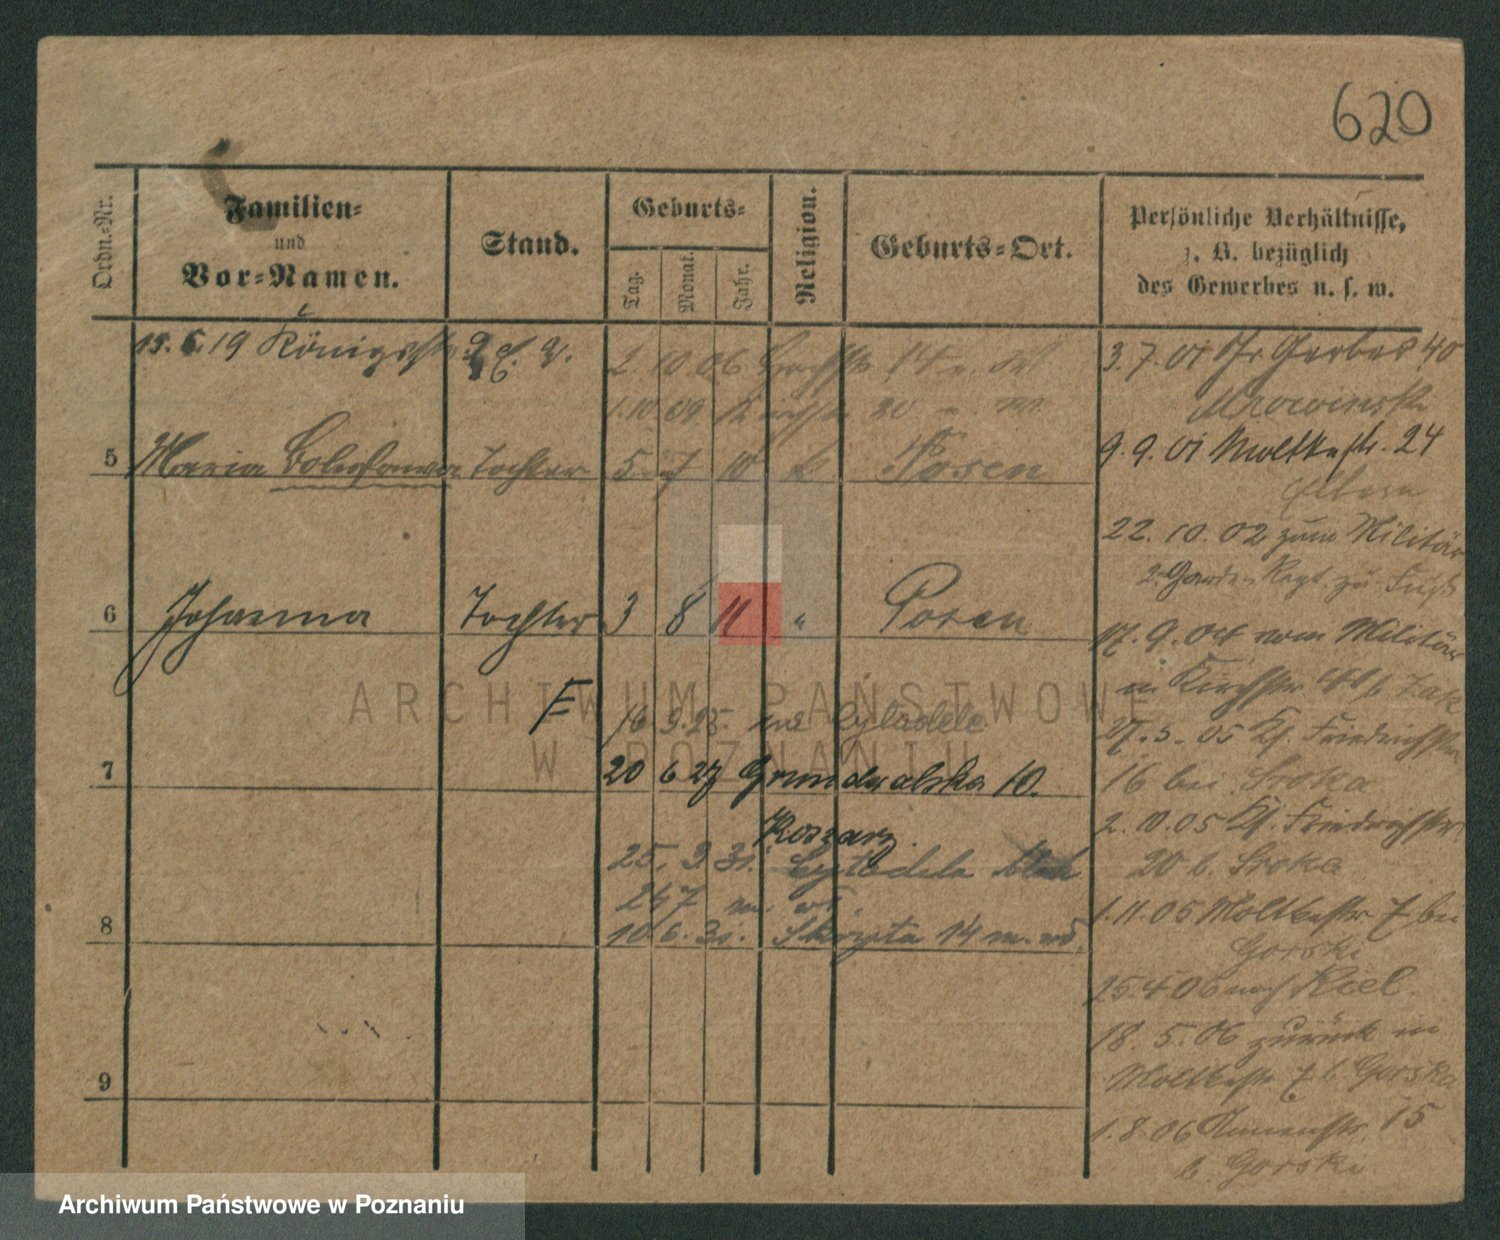 620
Ordn.-Nr.
Familien-
und
Vor-Namen.
Stand.
Geburts-
Tag.
Monat.
Jahr.
Religion.
Geburts-Ort.
Persönliche Verhältnisse,
z. B. bezüglich
des Gewerbes u. s. w.
15. 6. 19 Königsstr
2. 10. 06 14
1. 10. 09 80
5 Maria Tochter 5 7 10 k Posen
6 Johanna Tochter 3 8 11 " Posen
F
16. 9. 25 Cytadele
7 20 6 27 Grundwalska 10.
Koszary
25. 3. 31. Cytadela
24 7
8 10. 6. 31. Skryta 14 m.
9
3. 7. 01 Gr Gerber 40
Mrowinski
9. 9. 01 Moltkestr. 24
Eltern
22. 10. 02 zum Militär
2. Garde Regt zu Fuß
17. 9. 04 vom Militär
in Kirchstr b Zak
27. 3. 05 Kl. Friedrichstr
16 bei Sroka
2. 10. 05 Kl. Friedrichstr
20 b. Sroka
1. 11. 05 Moltkestr 7 bei
Gorski
25. 4 06 nach Kiel
18. 5. 06 zurück in
Moltkestr 7 b. Gorska
1. 8. 06 15
b. Gorski
ARCHIWUM PAŃSTWOWE
W POZNANIU
Archiwum Państwowe w Poznaniu